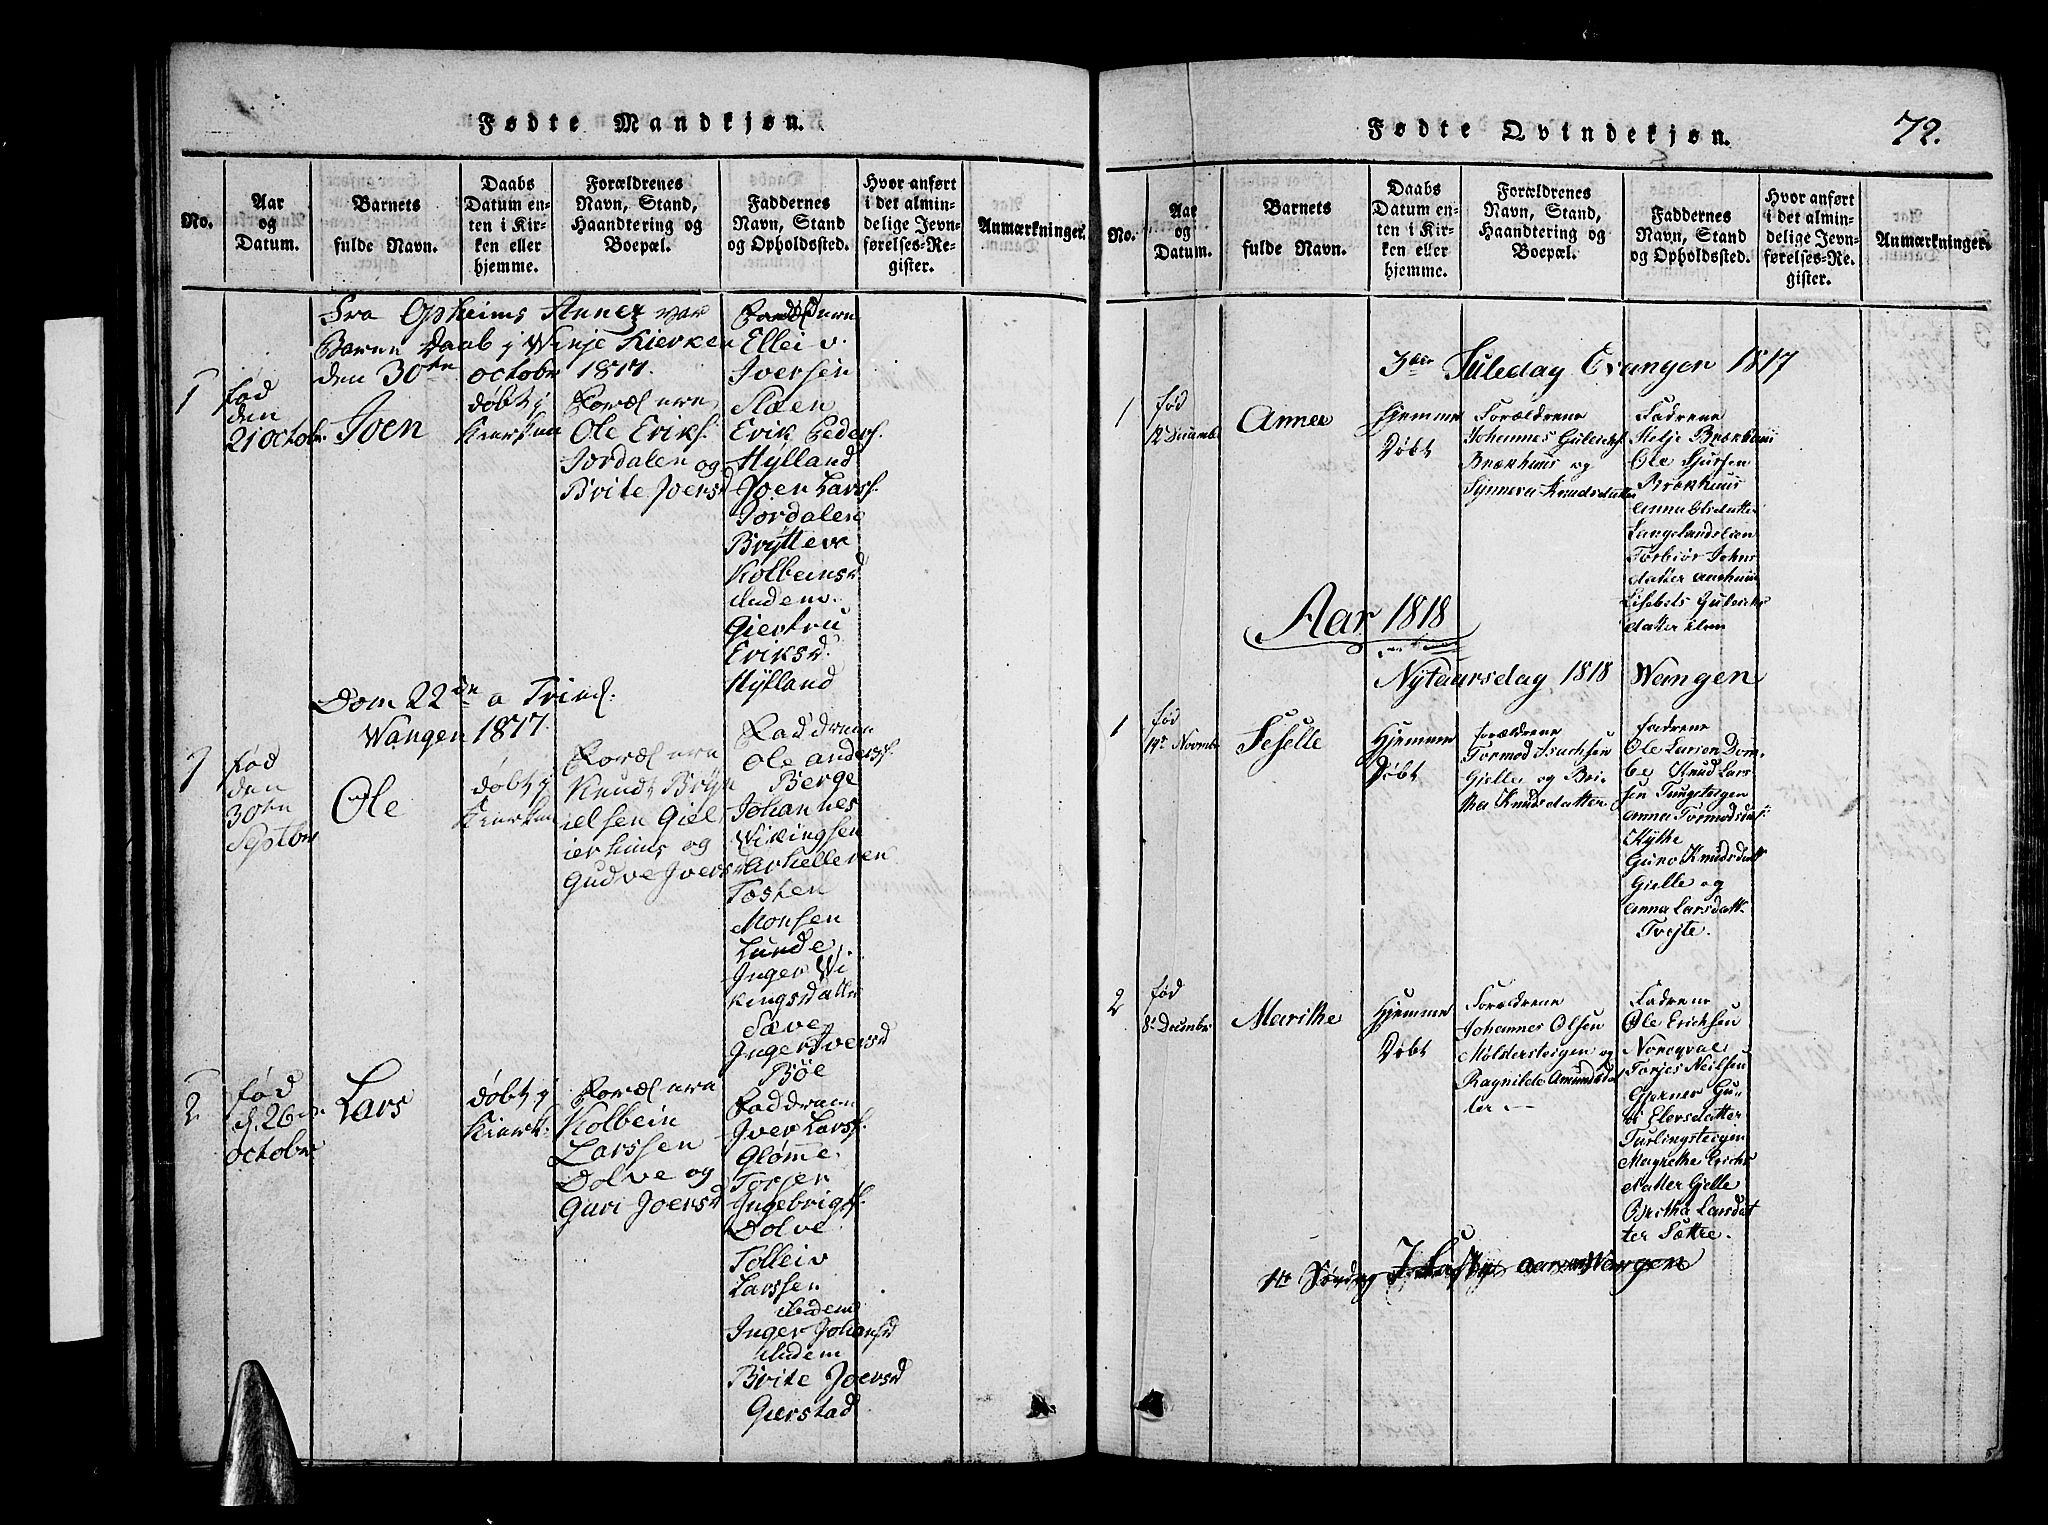 Fødte Mandkjøn.
No.
Aar
og
Datum.
Barnets
fulde Navn.
Daabs
Datum en-
ten i Kir-
ken eller
hjemme.
Forældrenes
Navn, Stand,
Haandtering og
Boepæl.
Faddernes
Navn, Stand
og Opholdssted.
Hvor anført
i det almin-
delige Jevn-
førelses-Re-
gister.
Anmærkninger.
Fra Opheims Anner var
Barne Daab j Winje Kierken
den 30te october 1817.
1
fød
den
21 octobr
Joen
døbt j
Kierken
Foræl erne
Ole Eriks.
Jordalen og
Brite Joersd
Faddrene
Elleiv
Iversen
Slæen
Erik Peders.
Hylland
Joen Lars.
Jordalen
Brytteve
Kolbeinsd
Gjertru
Eriksd.
Hylland
Dom 22de a Trind.
Wangen 1817.
1
fød
den
30te
Septbr
Ole
døbt j
Kierken
Foræl erne
Knudt Bryn
ielsen Giel
ierhuus og
Gudve Joersd
Faddrene
Ole Anders.
Berge
Johannes
Wikingsen
Tosten
Monsen
Lunde
Inger Wi
kingsdatter
Sæve
Inger Iversd
Bøe
2
fød
d. 26de
october
Lars
døbt j
Kierk:
Foræl erne
Kolbein
Larssen
Dolve og
Guri Joersd
Faddrene
Iver Lars.
Glømme
Torsten
Ingebrigts.
Dolve
Tolleiv
Larssen
Ibidem
Inger Johansd
Ibidem
Brite Joersd
Gierstad
Fødte Qvindekjøn.
72.
No.
Aar
og
Datum.
Barnets
fulde Navn.
Daabs
Datum en-
ten i Kir-
ken eller
hjemme.
Forældrenes
Navn, Stand,
Haandtering og
Boepæl.
Faddernes
Navn, Stand
og Opholdssted.
Hvor anført
i det almin-
delige Jevn-
førelses-Re-
gister.
Anmærkninger.
3die Juledag Evanger 1817
1
fød
12 Decembr
Anna
Hjemme
Døbt
Forældrene
Johannes Guleichs.
Brækhuus og
Synneva Knudsdatter
Fadrene
Helje Brækhuus
Ole Sjursen
Brækhuus
Anna Olsdatter
Langelandslien
Torbiør Johns
datter
Lisebet Guleichs
datter
Aar 1818
Nytaarsdag 1818 Wangen
1
fød
19de Novmbr
Seselle
Hjemme
Døbt
Forældrene
Tormod Isachsen
Gjelle og Bri-
tha Knudsdatter
Fadrene
Ole Larsen Dom-
be Knud Lars
sen Tungeteigen
Anna Tormodsdat.
Kythe
Guro Knudsdatt
Gjelle og
Anna Larsdatt.
Tvejte.
2
fød
8de Decmbr
Marithe
Hjemme
Døbt
Forældrene
Johannes Olsen
Mølstersteigen og
Ragnilde Amundsdat
ter
Fadrene
Ole Ericksen
Norqval
Torjes Neilsen
Gjerner Gu-
ri Elersdatter
Magrethe Erichs
datter Gjelle
Britha Larsdat
ter Sættre.
1te Søndag